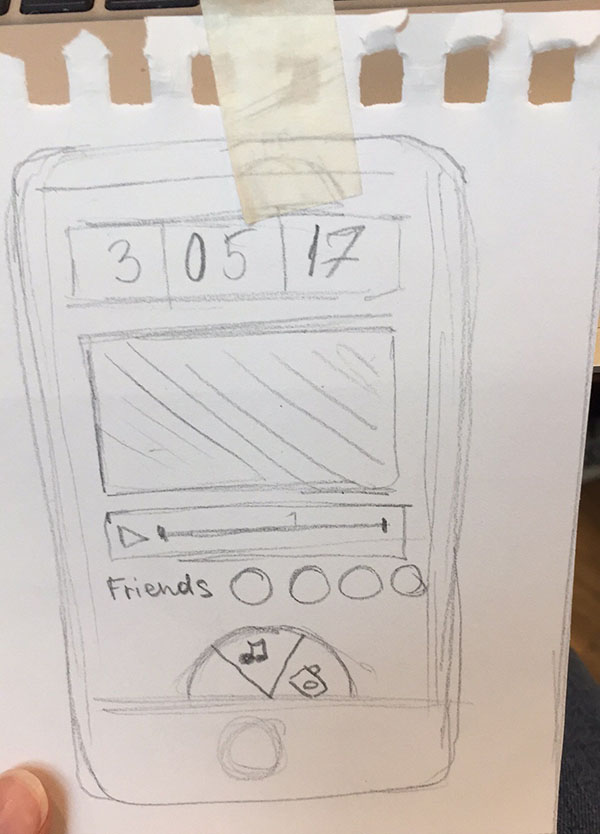 3 05 17
Friends